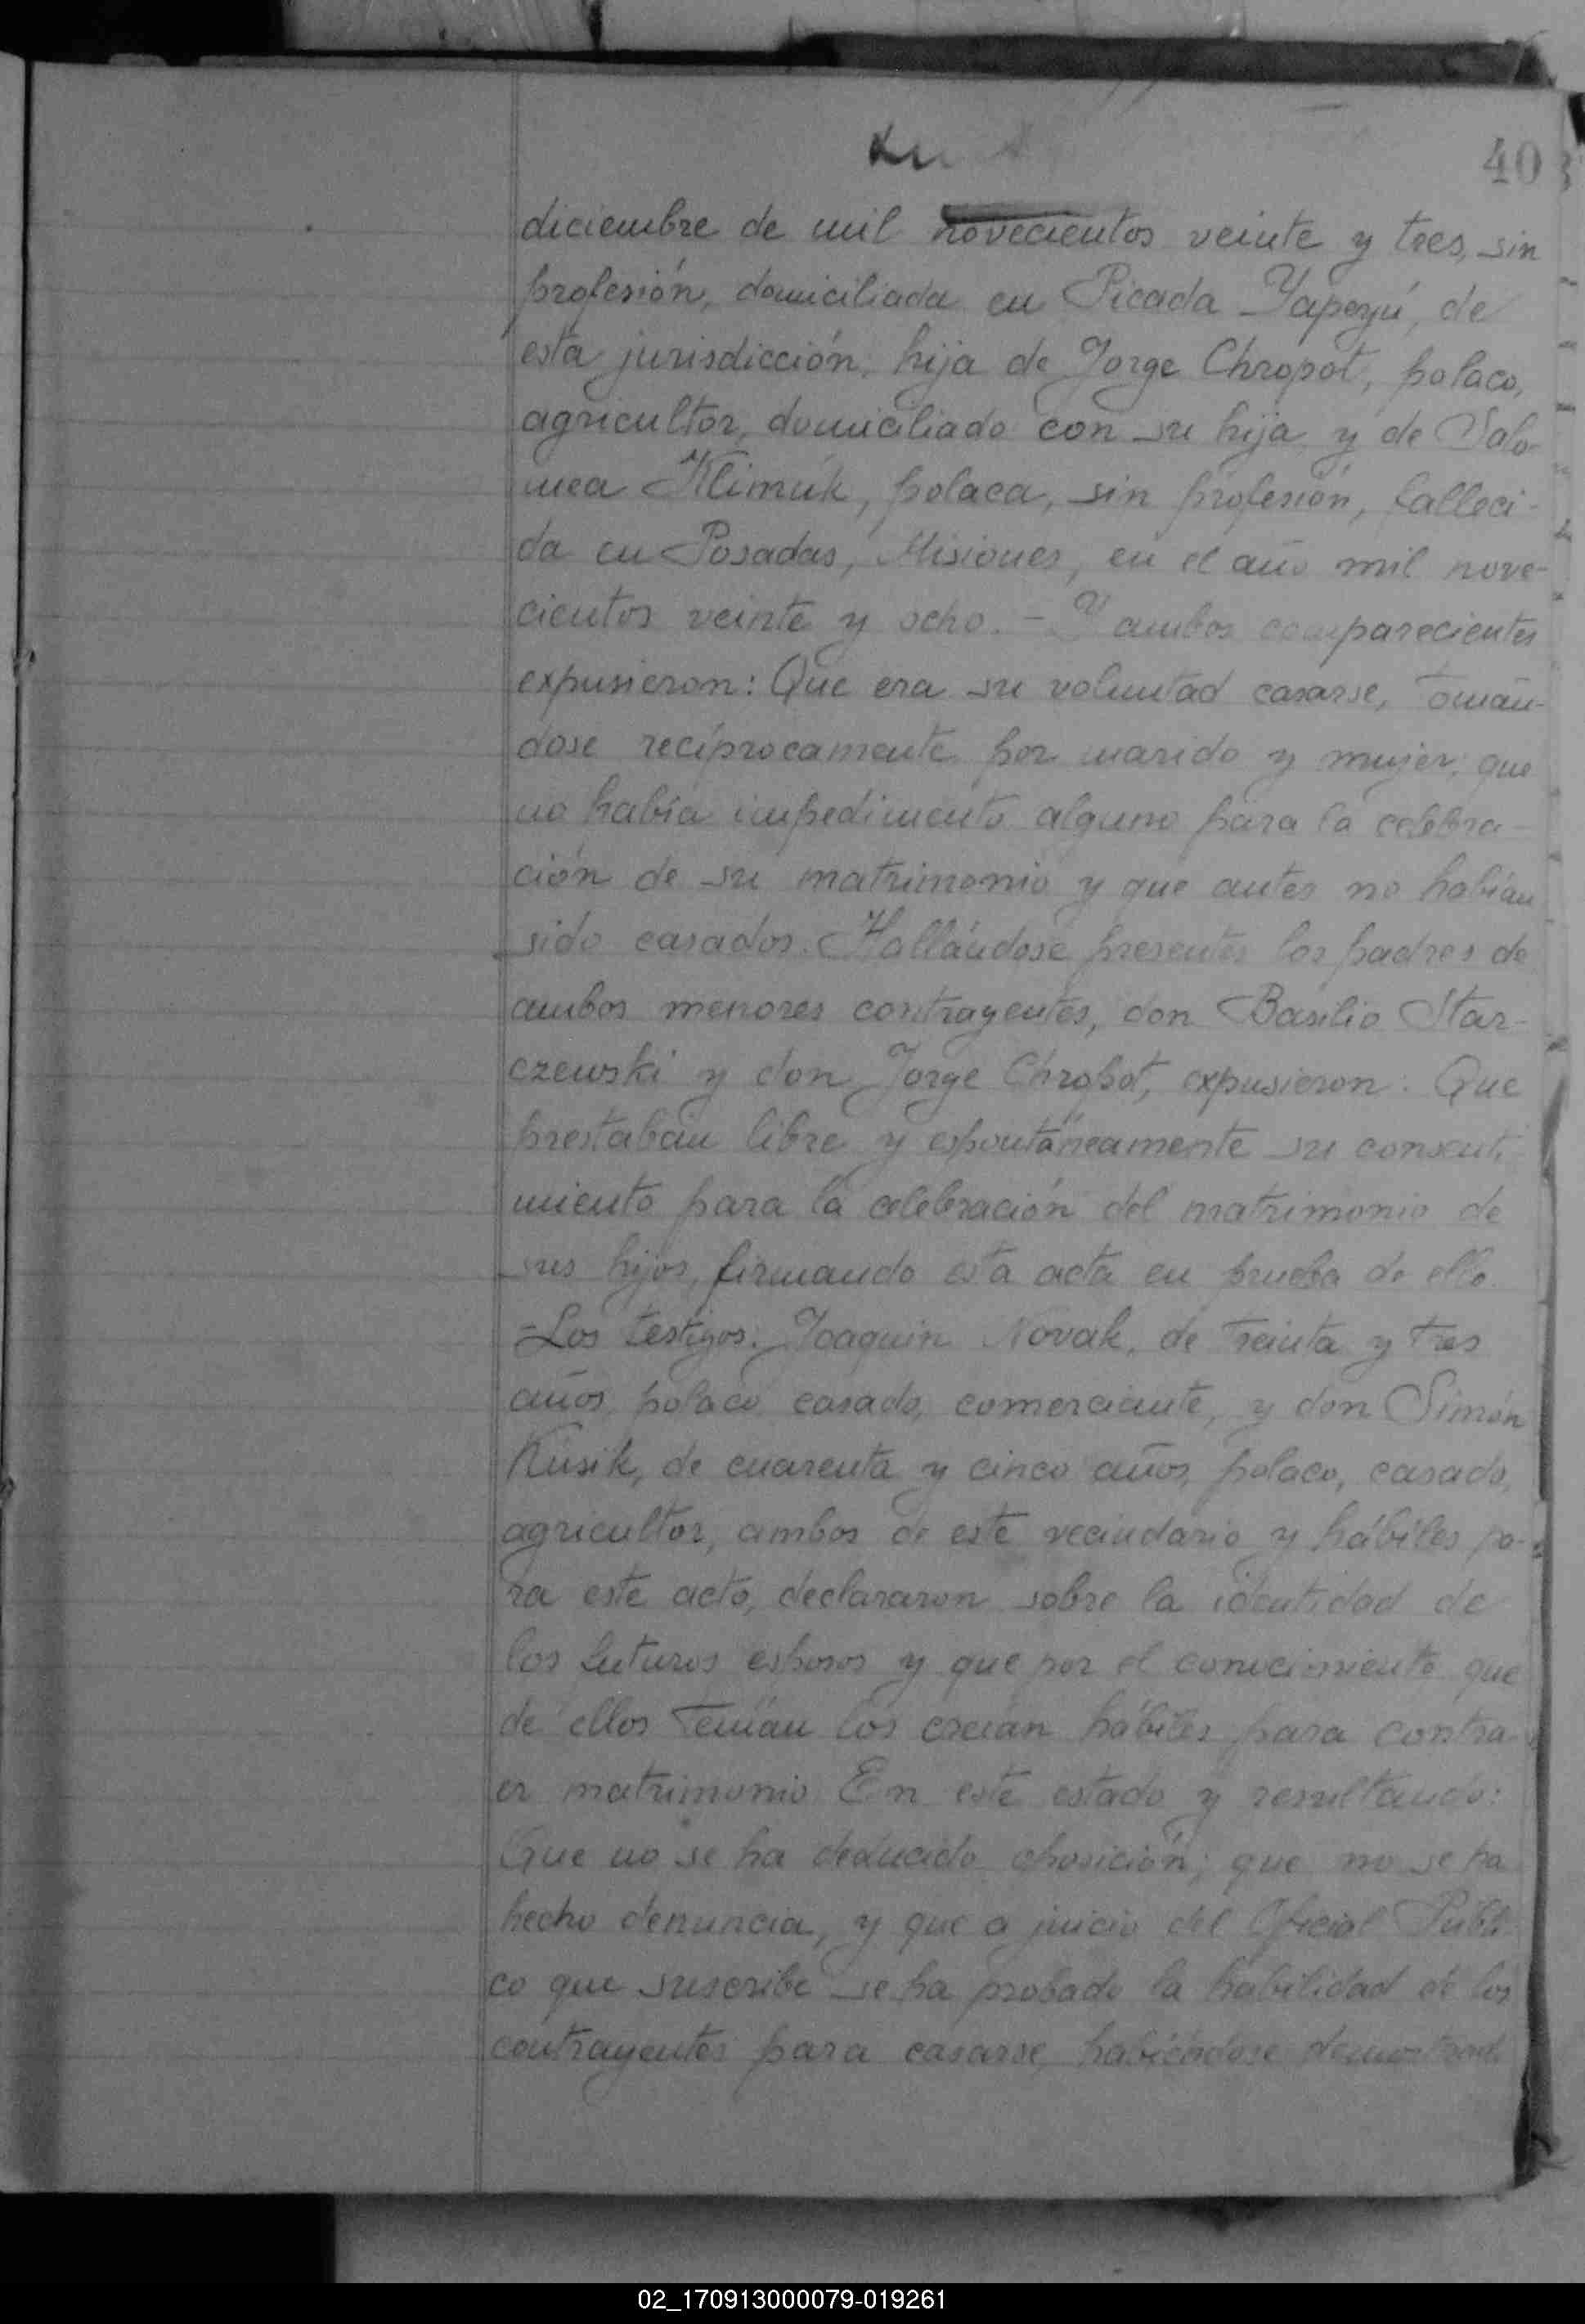 40
diciembre de mil novecientos veinte y tres, sin
profesión, domiciliada en Picada Yapeyú, de
esta jurisdicción, hija de Jorge Chropot, polaco,
agricultor, domiciliado con su hija y de Salo-
mea Klimúk, polaca, sin profesión, falleci-
da en Posadas, Misiones, en el año mil nove-
cientos veinte y ocho. - Y ambos comparecientes
expusieron: Que era su voluntad casarse, tomán-
dose recíprocamente por marido y mujer, que
no había impedimento alguno para la celebra-
ción de su matrimonio y que antes no habían
sido casados. Hallándose presentes los padres de
ambos menores contrayentes, don Basilio Star-
czewski y don Jorge Chrobot, expusieron: Que
prestaban libre y espontáneamente su consenti
miento para la celebración del matrimonio de
sus hijos, firmando esta acta en prueba de ello.
-Los testigos: Joaquin Novak, de treinta y tres
años, polaco, casado, comerciante, y don Simón
Kusik, de cuarenta y cinco años, polaco, casado,
agricultor, ambos de este vecindario y hábiles pa-
ra este acto, declararon sobre la identidad de
los futuros esposos y que por el conocimiento que
de ellos tenían los creían hábiles para contra-
er matrimonio. En este estado y resultando:
Que no se ha deducido oposición; que no se ha
hecho denuncia, y que a juicio del Oficial Públi
co que suscribe se ha probado la habilidad de los
contrayentes para casarse, habiéndose demostrado
02_170913000079-019261